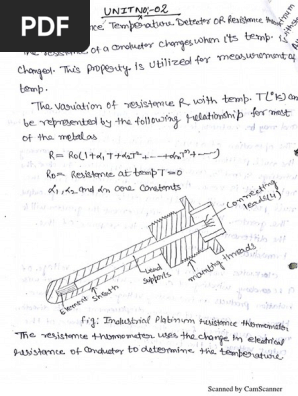 PDF
UNIT NO:-02
Temperature Detector OR Resistance
the resistance of a conductor changes when its temp. is
changed. This property is utilized for measurement of
temp.
The variation of resistance R with temp. T(°K) can
be represented by the following relationship for most
of the metal as
R = R₀(1+α₁T+α₂T²+----+αₙTⁿ+----)
R₀ = Resistance at temp T=0
α₁,α₂ and αn are constants
connecting
leads(4)
mounting threads
Lead
supports
sheath
Element
fig: Industrial Platinum resistance thermometer
The resistance thermometer uses the change in electrical
resistance of conductor to determine the temperature
Scanned by CamScanner